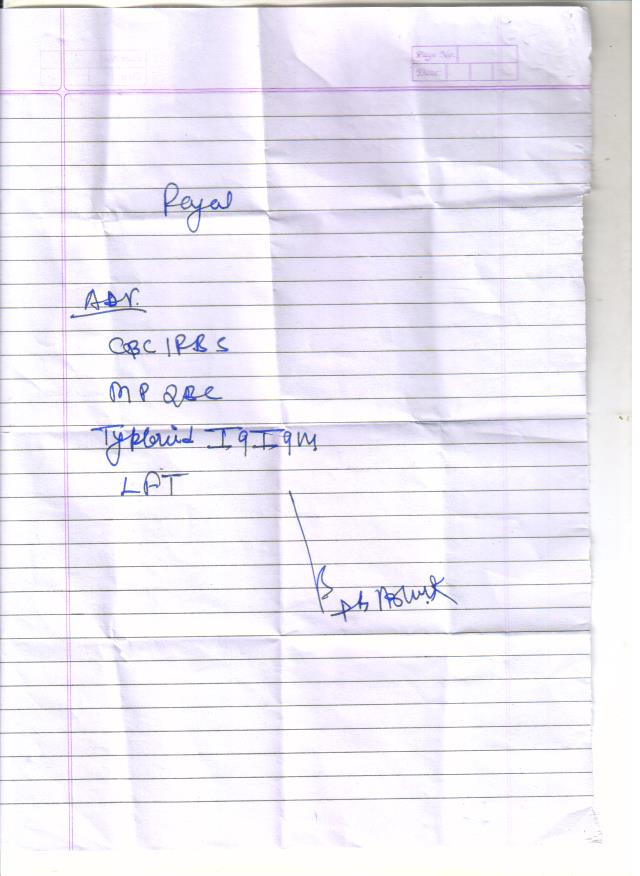 Page No.
Date
Payal
Adv.
CBC / RBS
MP QBC
Typhoid IgIgM
LFT